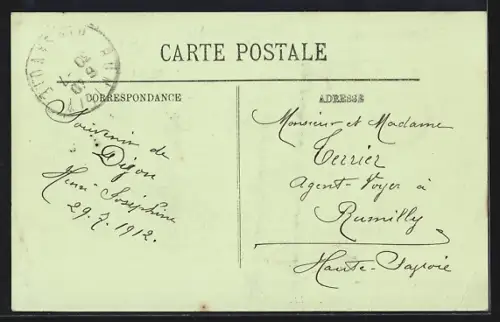 CARTE POSTALE
CORRESPONDANCE
Souvenir de
Dijon
Henri-Joséphine
29.7.1912.
ADRESSE
Monsieur et Madame
Terrier
Agent-Voyer à
Rumilly
Haute-Savoie